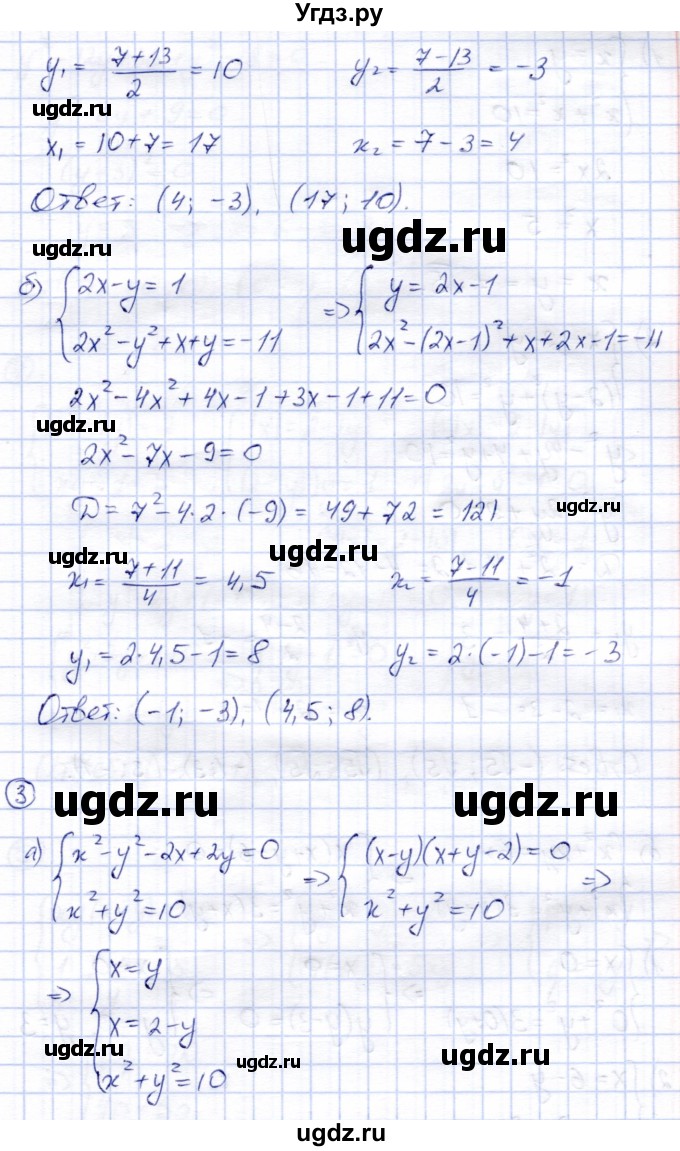 Угдз.ру
y₁ = (7+13)/2 = 10    y₂ = (7-13)/2 = -3
ugdz.ru
x₁ = 10+7 = 17    x₂ = 7-3 = 4
Ответ: (4; -3), (17; 10).
ugdz.ru ugdz.ru
б) { 2x-y = 1    => { y = 2x-1
2x²-y²+x+y = -11    2x²-(2x-1)²+x+2x-1 = -11
ugdz.ru ugdz.ru
2x²-4x²+4x-1+3x-1+11 = 0
ugdz.ru
2x²-7x-9 = 0
Д = 7²-4·2·(-9) = 49+72 = 121
ugdz.ru ugdz.ru
ugdz.ru
x₁ = (7+11)/4 = 4,5    x₂ = (7-11)/4 = -1
y₁ = 2·4,5-1 = 8    y₂ = 2·(-1)-1 = -3
ugdz.ru
Ответ: (-1; -3), (4,5; 8).
3
ugdz.ru ugdz.ru
а) { x²-y²-2x+2y = 0    => { (x-y)(x+y-2) = 0    =>
x²+y² = 10    x²+y² = 10
=> { x = y
x = 2-y
ugdz.ru ugdz.ru ugdz.ru
x²+y² = 10
ugdz.ru